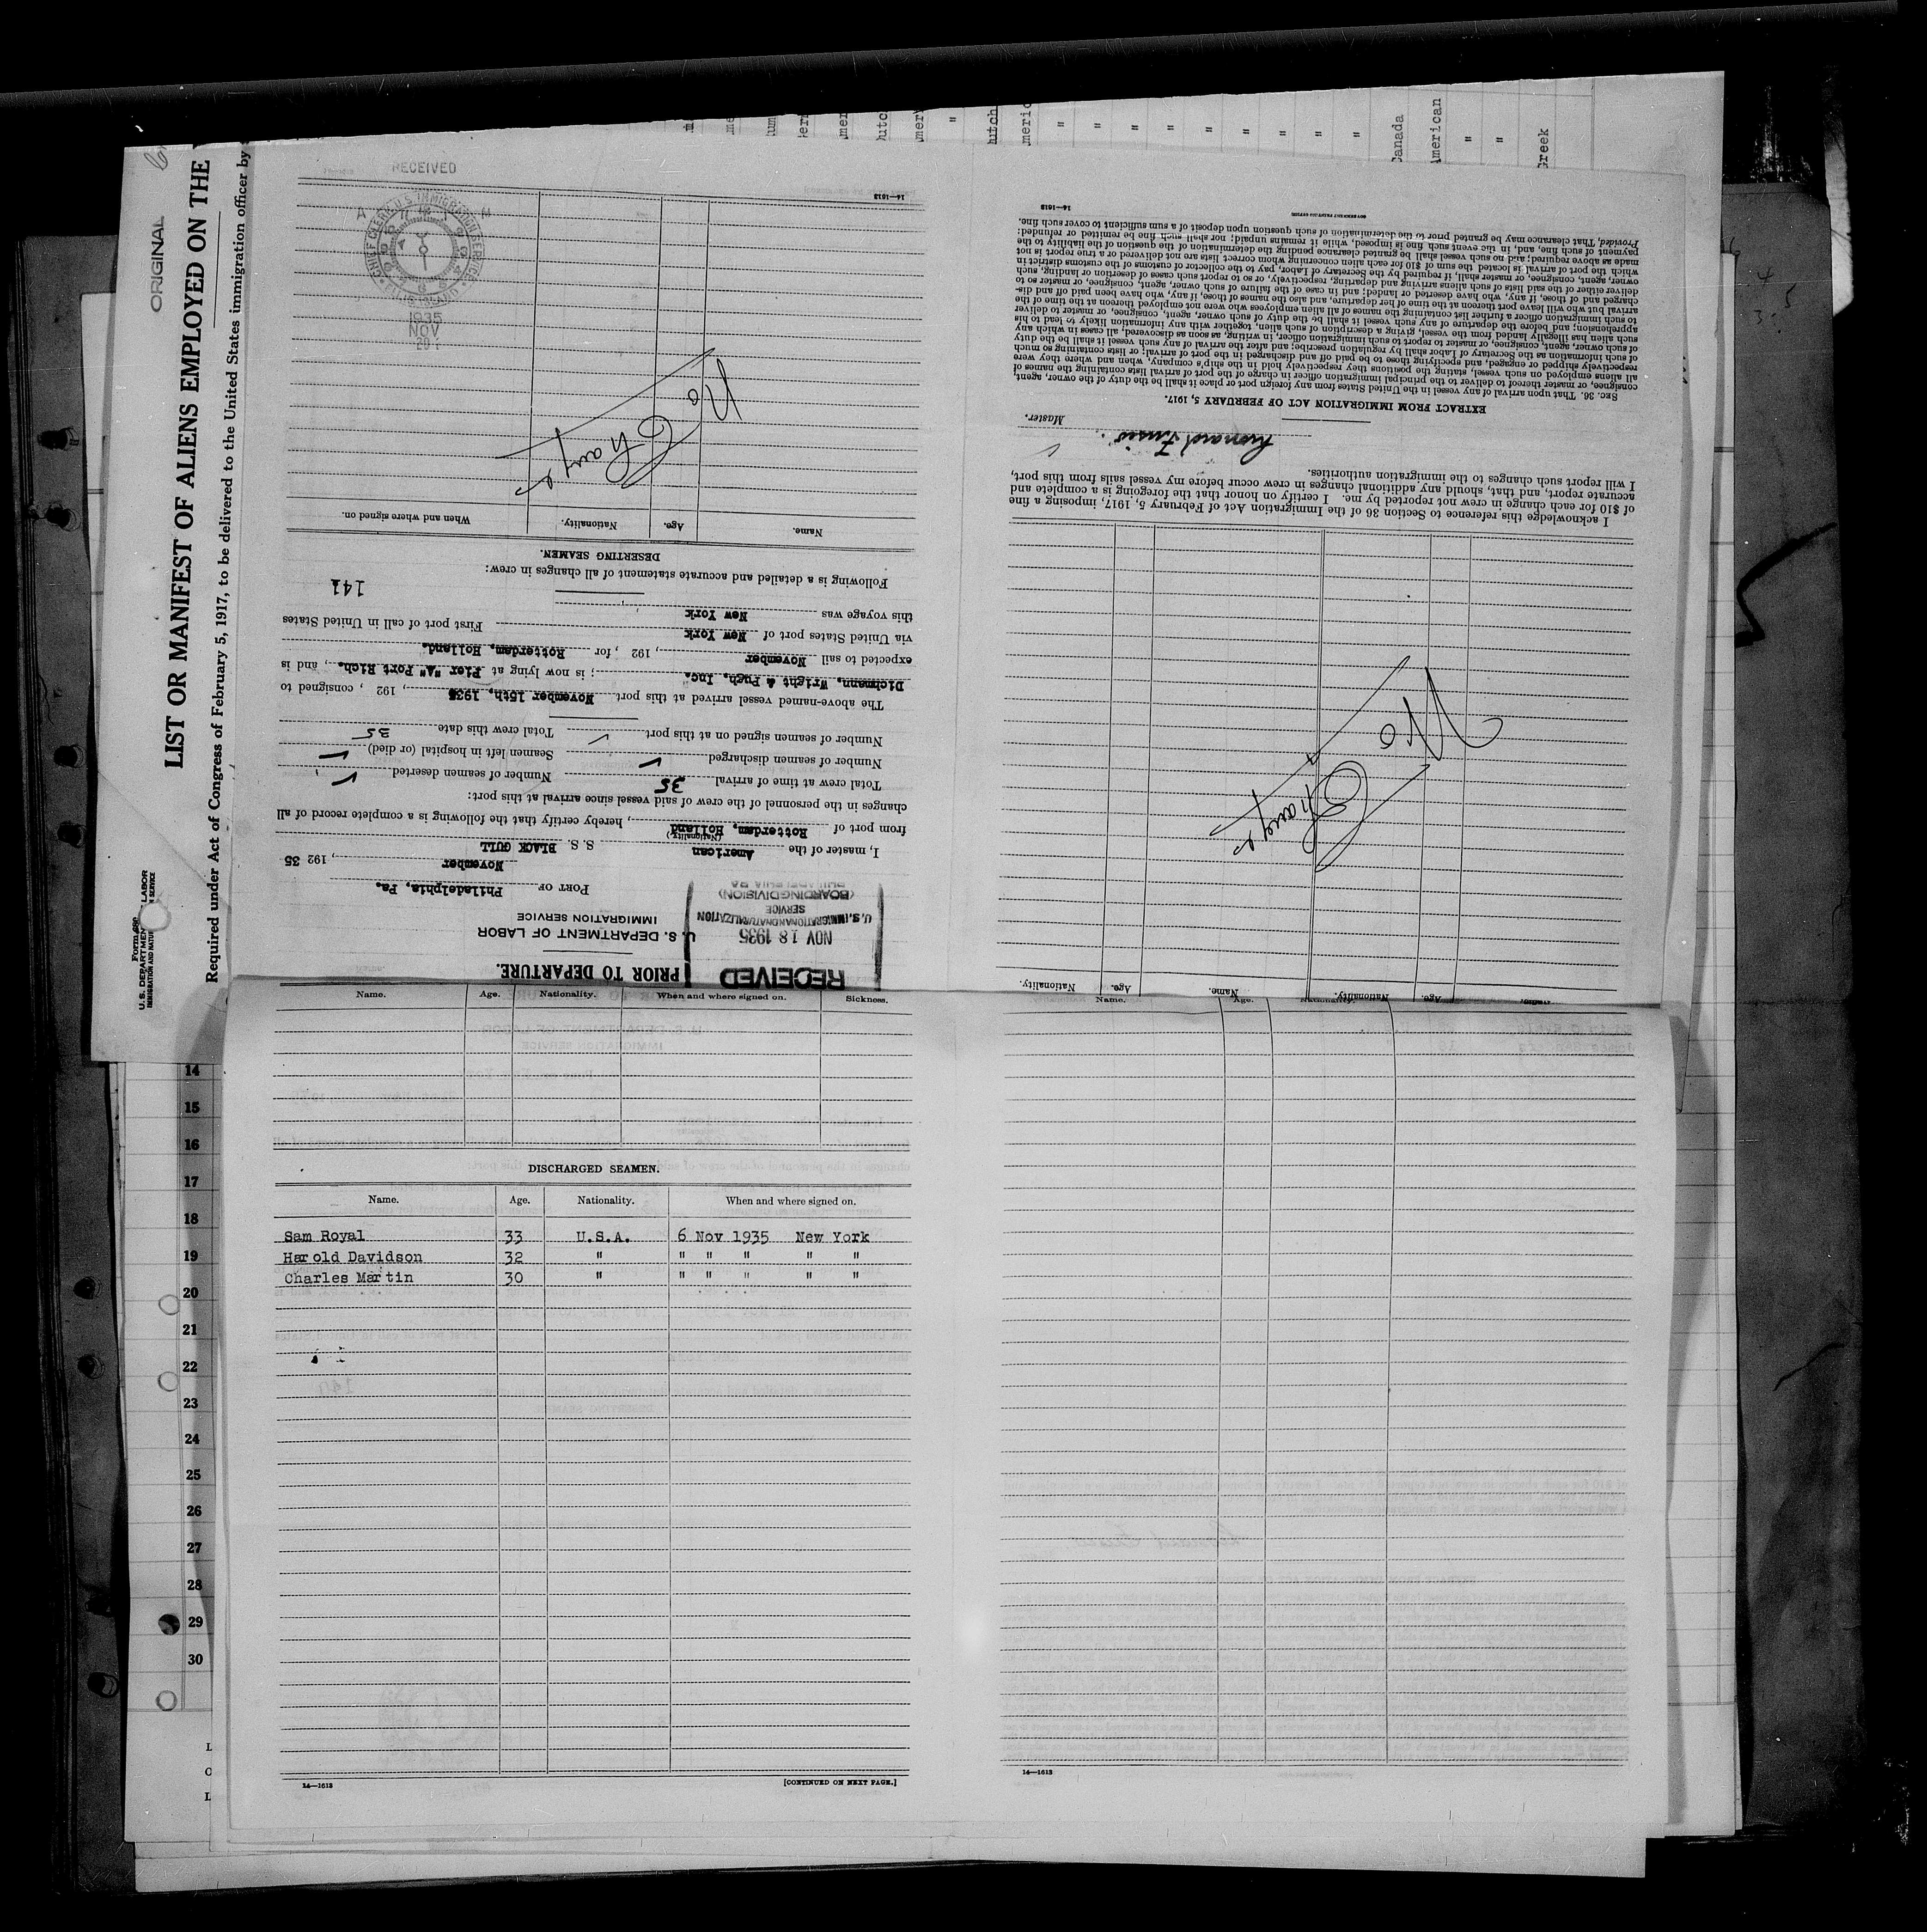 ORIGINAL
LIST OR MANIFEST OF ALIENS EMPLOYED ON THE
Required under Act of Congress of February 5, 1917, to be delivered to the United States immigration officer by
Form 680
U.S. DEPARTMENT LABOR
IMMIGRATION AND NATUR N SERVICE
Canada
American
"
"
Greek
RECEIVED
NOV 18 1935
U.S. IMMIGRATION AND NATURALIZATION
SERVICE
(BOARDING DIVISION)
PHILADELPHIA PA
PRIOR TO DEPARTURE.
U. S. DEPARTMENT OF LABOR
IMMIGRATION SERVICE
PORT OF Philadelphia, Pa.
November, 192 35
I, master of the American S. S. BLACK GULL
(Nationality)
from port of Rotterdam, Holland, hereby certify that the following is a complete record of all
changes in the personnel of the crew of said vessel since arrival at this port:
Total crew at time of arrival 35 Number of seamen deserted ✓
Number of seamen discharged ✓ Seamen left in hospital (or died) ✓
Number of seamen signed on at this port ✓ Total crew this date 35
The above-named vessel arrived at this port November 15th, 1935, 192 , consigned to
Dichmann, Wright & Pugh, Inc. ; is now lying at Pier "A" Port Rich. , and is
expected to sail November , 192 , for Rotterdam, Holland.
via United States port of New York First port of call in United States
this voyage was New York
141
Following is a detailed and accurate statement of all changes in crew:
DESERTING SEAMEN.
Name. Age. Nationality. When and where signed on.
No Change
RECEIVED
CHIEF CLERK U.S. IMMIGRATION SERVICE
ELLIS ISLAND
1935
NOV
20
14—1613
Name. Age. Nationality. Name. Age. Nationality.
No Change
I acknowledge this reference to Section 36 of the Immigration Act of February 5, 1917, imposing a fine
of $10 for each change in crew not reported by me. I certify on honor that the foregoing is a complete and
accurate report, and that, should any additional changes in crew occur before my vessel sails from this port,
I will report such changes to the immigration authorities.
Master.
EXTRACT FROM IMMIGRATION ACT OF FEBRUARY 5, 1917.
SEC. 36. That upon arrival of any vessel in the United States from any foreign port or place it shall be the duty of the owner, agent,
consignee, or master thereof to deliver to the principal immigration officer in charge of the port of arrival lists containing the names of
all aliens employed on such vessel, stating the positions they respectively hold in the ship's company, when and where they were
respectively shipped or engaged, and specifying those to be paid off and discharged in the port of arrival; or lists containing so much
of such information as the Secretary of Labor shall by regulation prescribe; and after the arrival of any such vessel it shall be the duty
of such owner, agent, consignee, or master to report to such immigration officer, in writing, as soon as discovered, all cases in which any
such alien has illegally landed from the vessel, giving a description of such alien, together with any information likely to lead to his
apprehension; and before the departure of any such vessel it shall be the duty of such owner, agent, consignee, or master to deliver
to such immigration officer a further list containing the names of all alien employees who were not employed thereon at the time of the
arrival but who will leave port thereon at the time of her departure, and also the names of those, if any, who have been paid off and dis-
charged and of those, if any, who have deserted or landed; and in case of the failure of such owner, agent, consignee, or master so to
deliver either of the said lists of such aliens arriving and departing, respectively, or so to report such cases of desertion or landing, such
owner, agent, consignee, or master shall, if required by the Secretary of Labor, pay to the collector of customs of the customs district in
which the port of arrival is located the sum of $10 for each alien concerning whom correct lists are not delivered or a true report is not
made as above required; and no such vessel shall be granted clearance pending the determination of the question of the liability to the
payment of such fine, and, in the event such fine is imposed, while it remains unpaid; nor shall such fine be remitted or refunded:
Provided, That clearance may be granted prior to the determination of such question upon deposit of a sum sufficient to cover such fine.
14—1613
Name. Age. Nationality. When and where signed on. Sickness.
DISCHARGED SEAMEN.
Name. Age. Nationality. When and where signed on.
Sam Royal 33 U.S.A. 6 Nov 1935 New York
Harold Davidson 32 " " " " " "
Charles Martin 30 " " " " " "
14—1613 [CONTINUED ON NEXT PAGE.]
Name. Age. Nationality.
14—1613
14
15
16
17
18
19
20
21
22
23
24
25
26
27
28
29
30